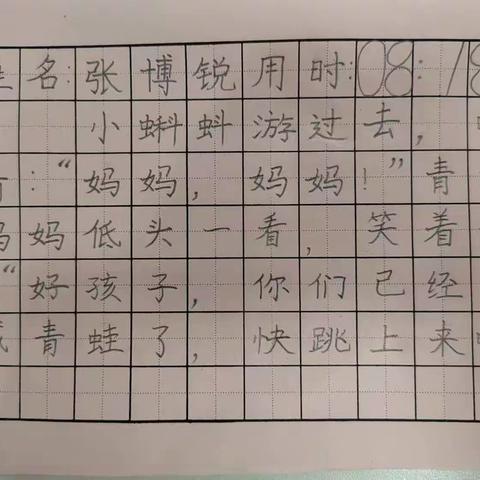 名:张博锐用时:08:18
小蝌蚪游过去,
:“妈妈,妈妈!”青
妈妈低头一看,笑着
“好孩子,你们已经
青蛙了,快跳上来